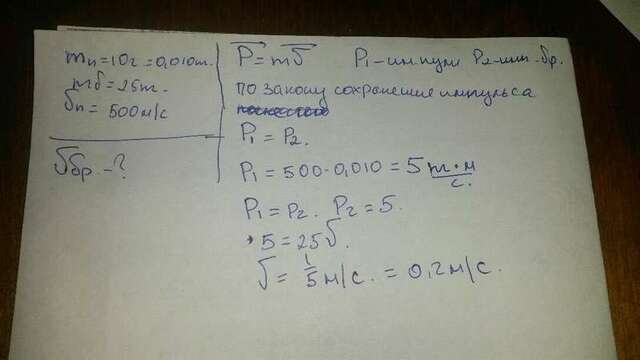 mп=10г=0,010т.
mб=25т.
υп=500м/с
υбр.-?
P=mυ P₁-имп.пули P₂-имп.-бр.
по закону сохранение импульса
P₁=P₂.
P₁=500·0,010=5 т·м/с.
P₁=P₂. P₂=5.
5=25υ.
υ=1/5м/с.=0,2м/с.